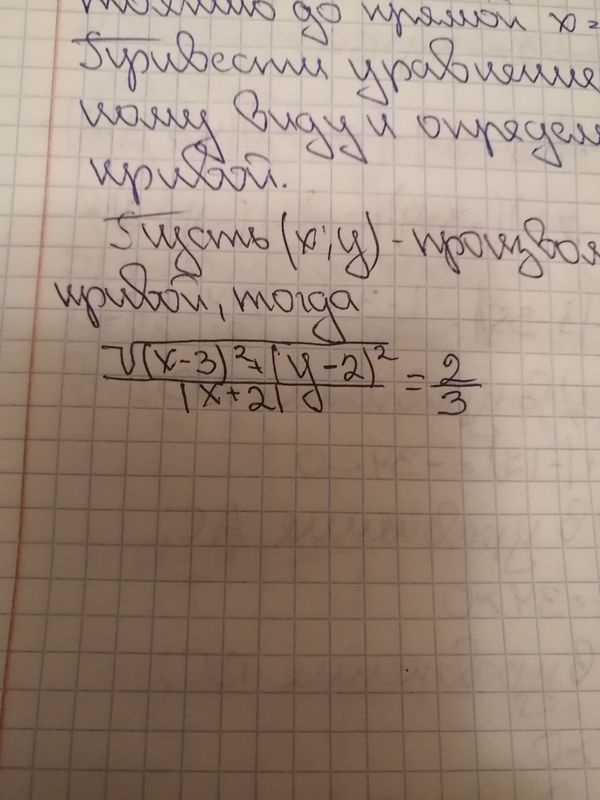 тоянию до прямой x=
Привести уравнение
ному виду и определ
кривой.
Пусть (x; y) - произвол
кривой, тогда
√((x-3)²+(y-2)²) / |x+2| = 2/3